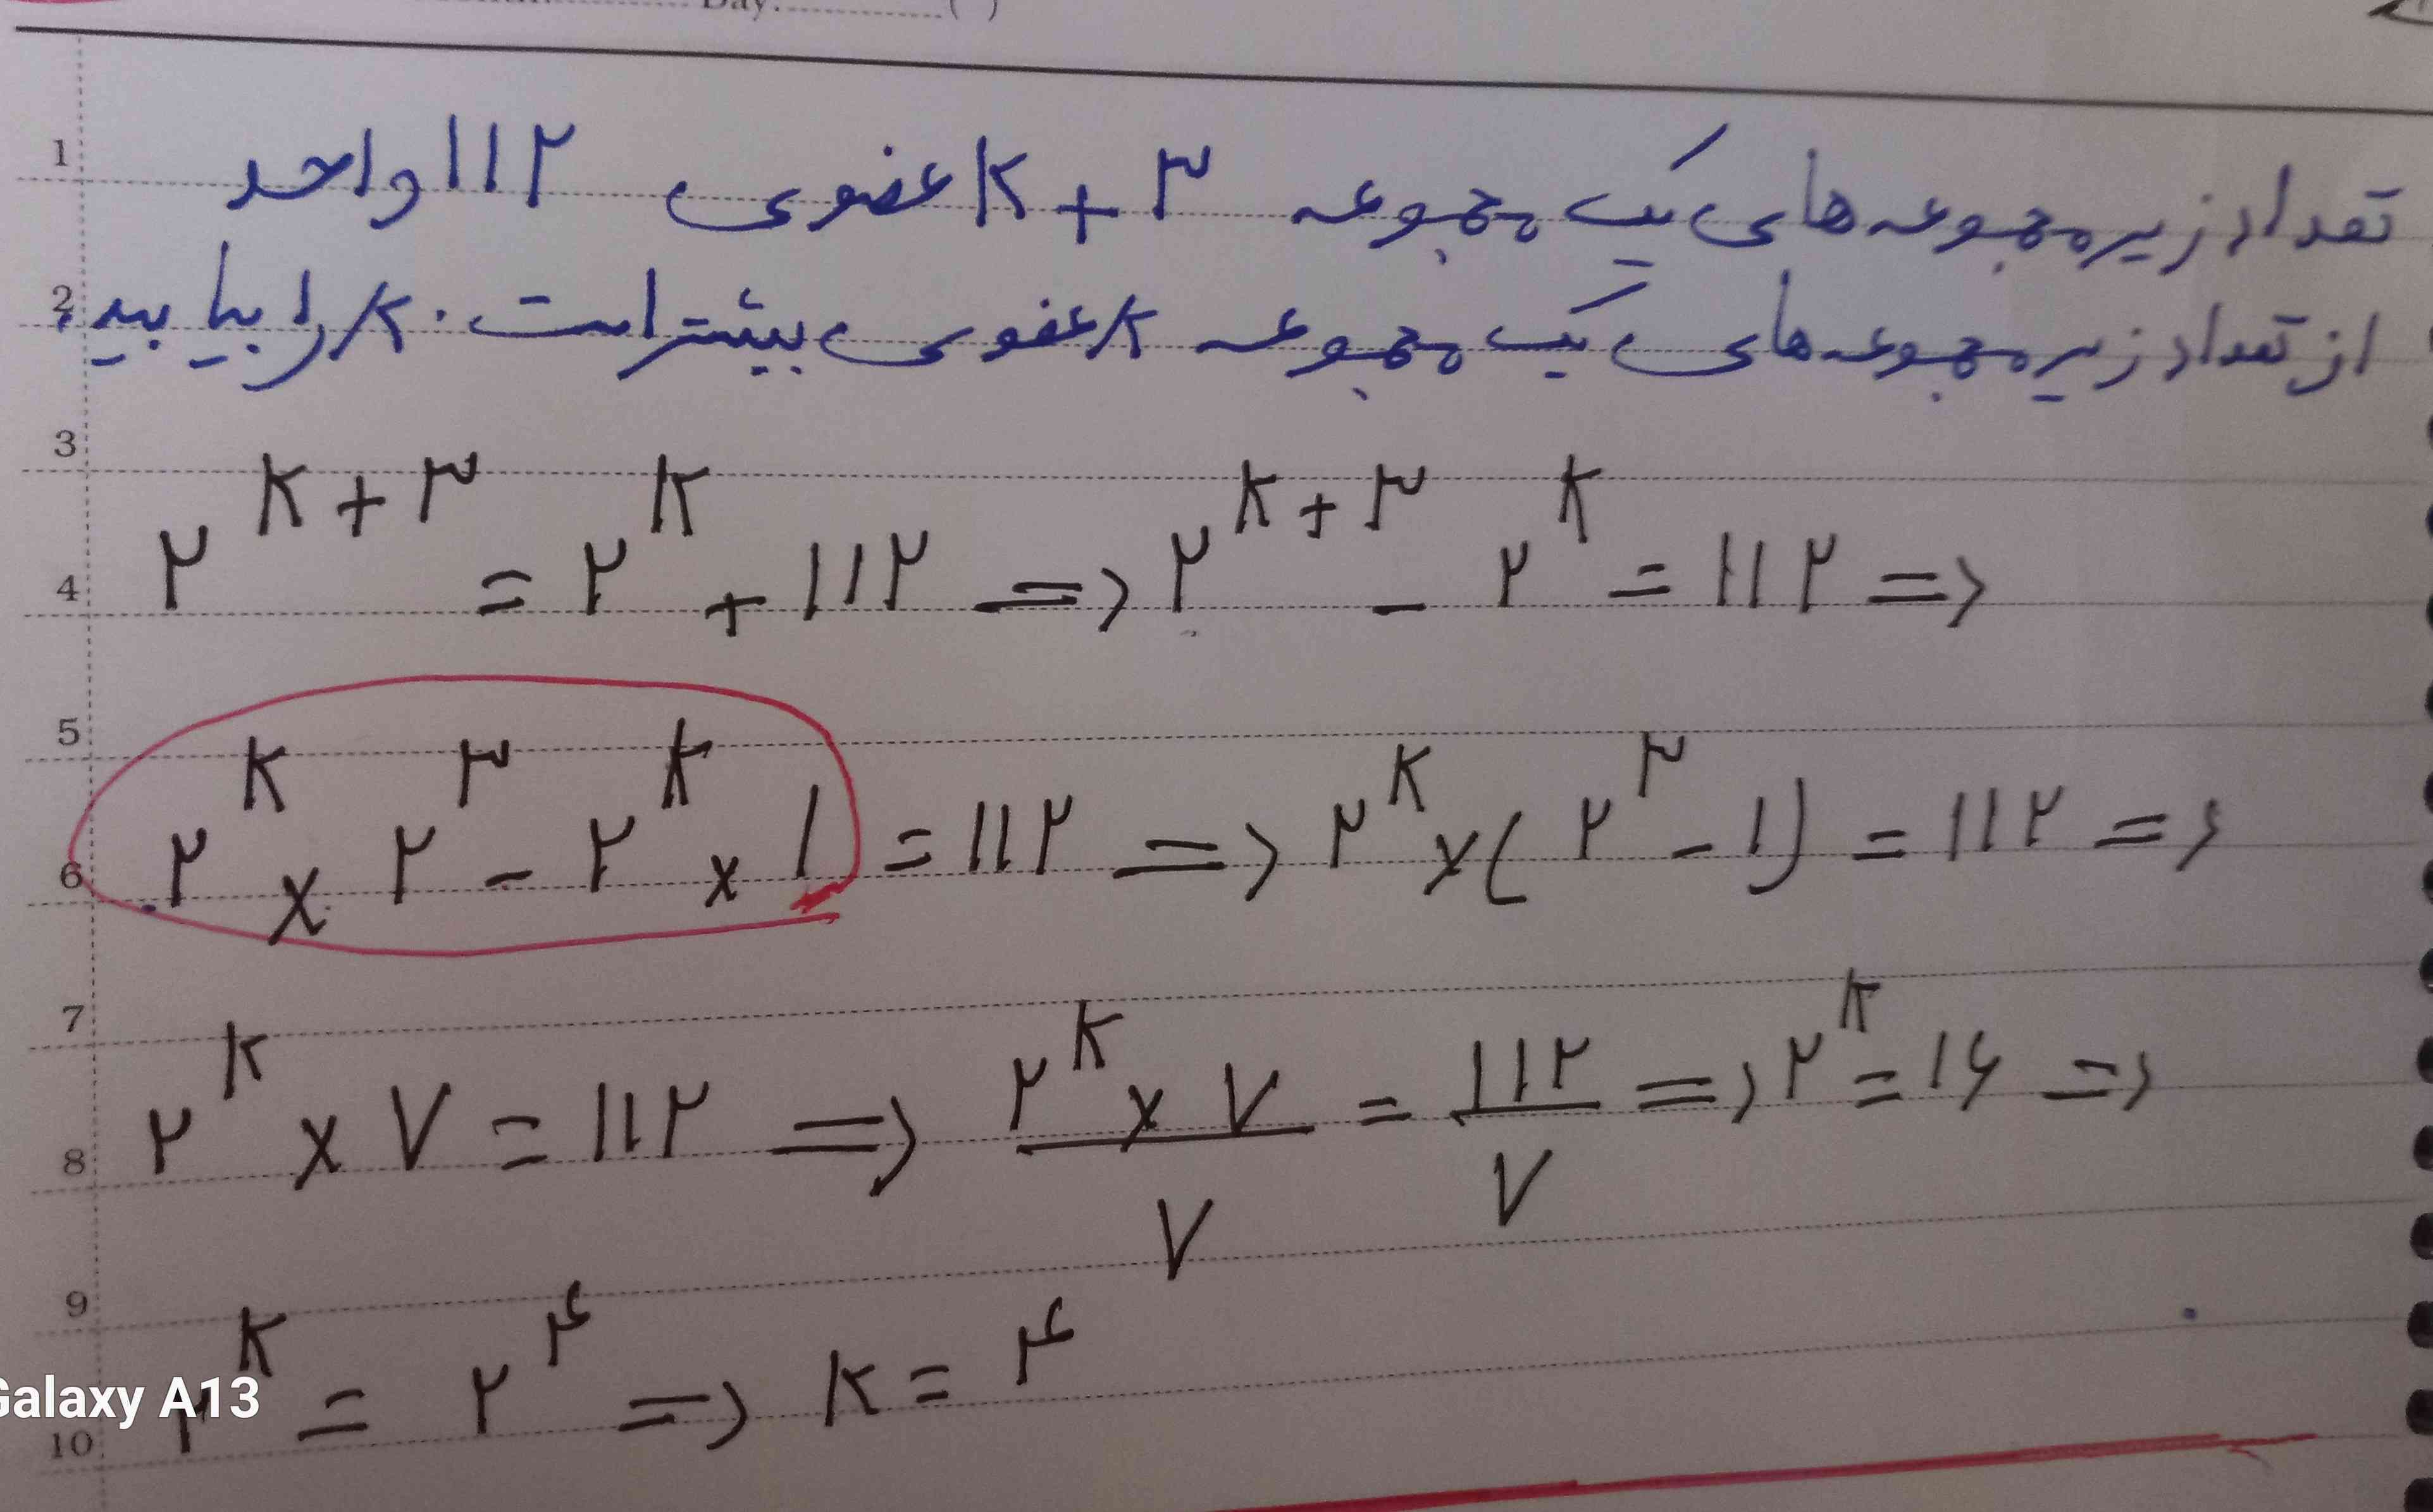 Day: ( )
1 تعداد زیرمجموعه های یک مجموعه K+۳ عضوی ۱۱۲ واحد
2 از تعداد زیرمجموعه های یک مجموعه K عضوی بیشتر است. K را بیابید.
3
4 ۲^(K+۳) = ۲^K + ۱۱۲ => ۲^(K+۳) - ۲^K = ۱۱۲ =>
5
6 ۲^K × ۲^۳ - ۲^K × ۱ = ۱۱۲ => ۲^K × (۲^۳ - ۱) = ۱۱۲ =>
7
8 ۲^K × ۷ = ۱۱۲ => (۲^K × ۷)/۷ = ۱۱۲/۷ => ۲^K = ۱۶ =>
9
10 ۲^K = ۲^۴ => K = ۴
Galaxy A13